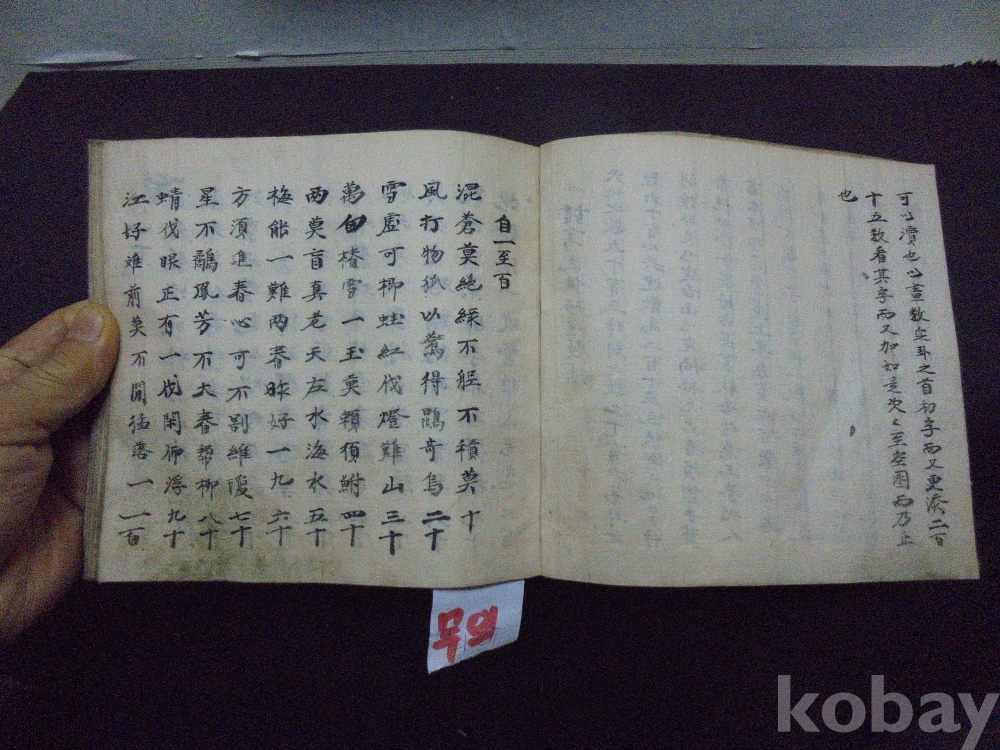 可以讀也以畫數定斗之首初字而又更添二百
十五数看其字而又加如是次〻至空圈而乃止
也
自一至百
混蒼莫絶緑不躱不積莫十
風打物狐以鶯得鷗奇烏二十
雪虛可柳蛙紅伐燈難山三十
萬白椿雪一玉莫頼須鮒四十
两莫盲真老天左水海水五十
梅能一難两春昨好一九六十
方須進春心可不別維援七十
星不鷸鳳芳不大春帶柳八十
蜻伐眼正有一伐閑師浮九十
江好难前莫不聞猛落一一百
무의
kobay